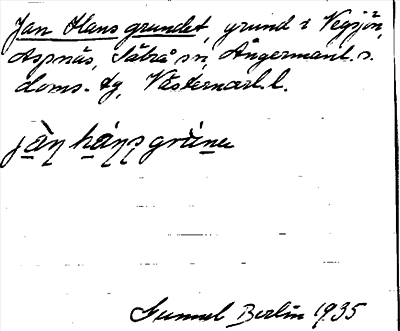 Jan Hans grundet, grund i Vegsjön,
Aspnäs, Säbrå sn, Ångermanl. s.
doms. tg, Västernorrl. l.
jàn hánsgrùne
Gunnel Berlin 1935